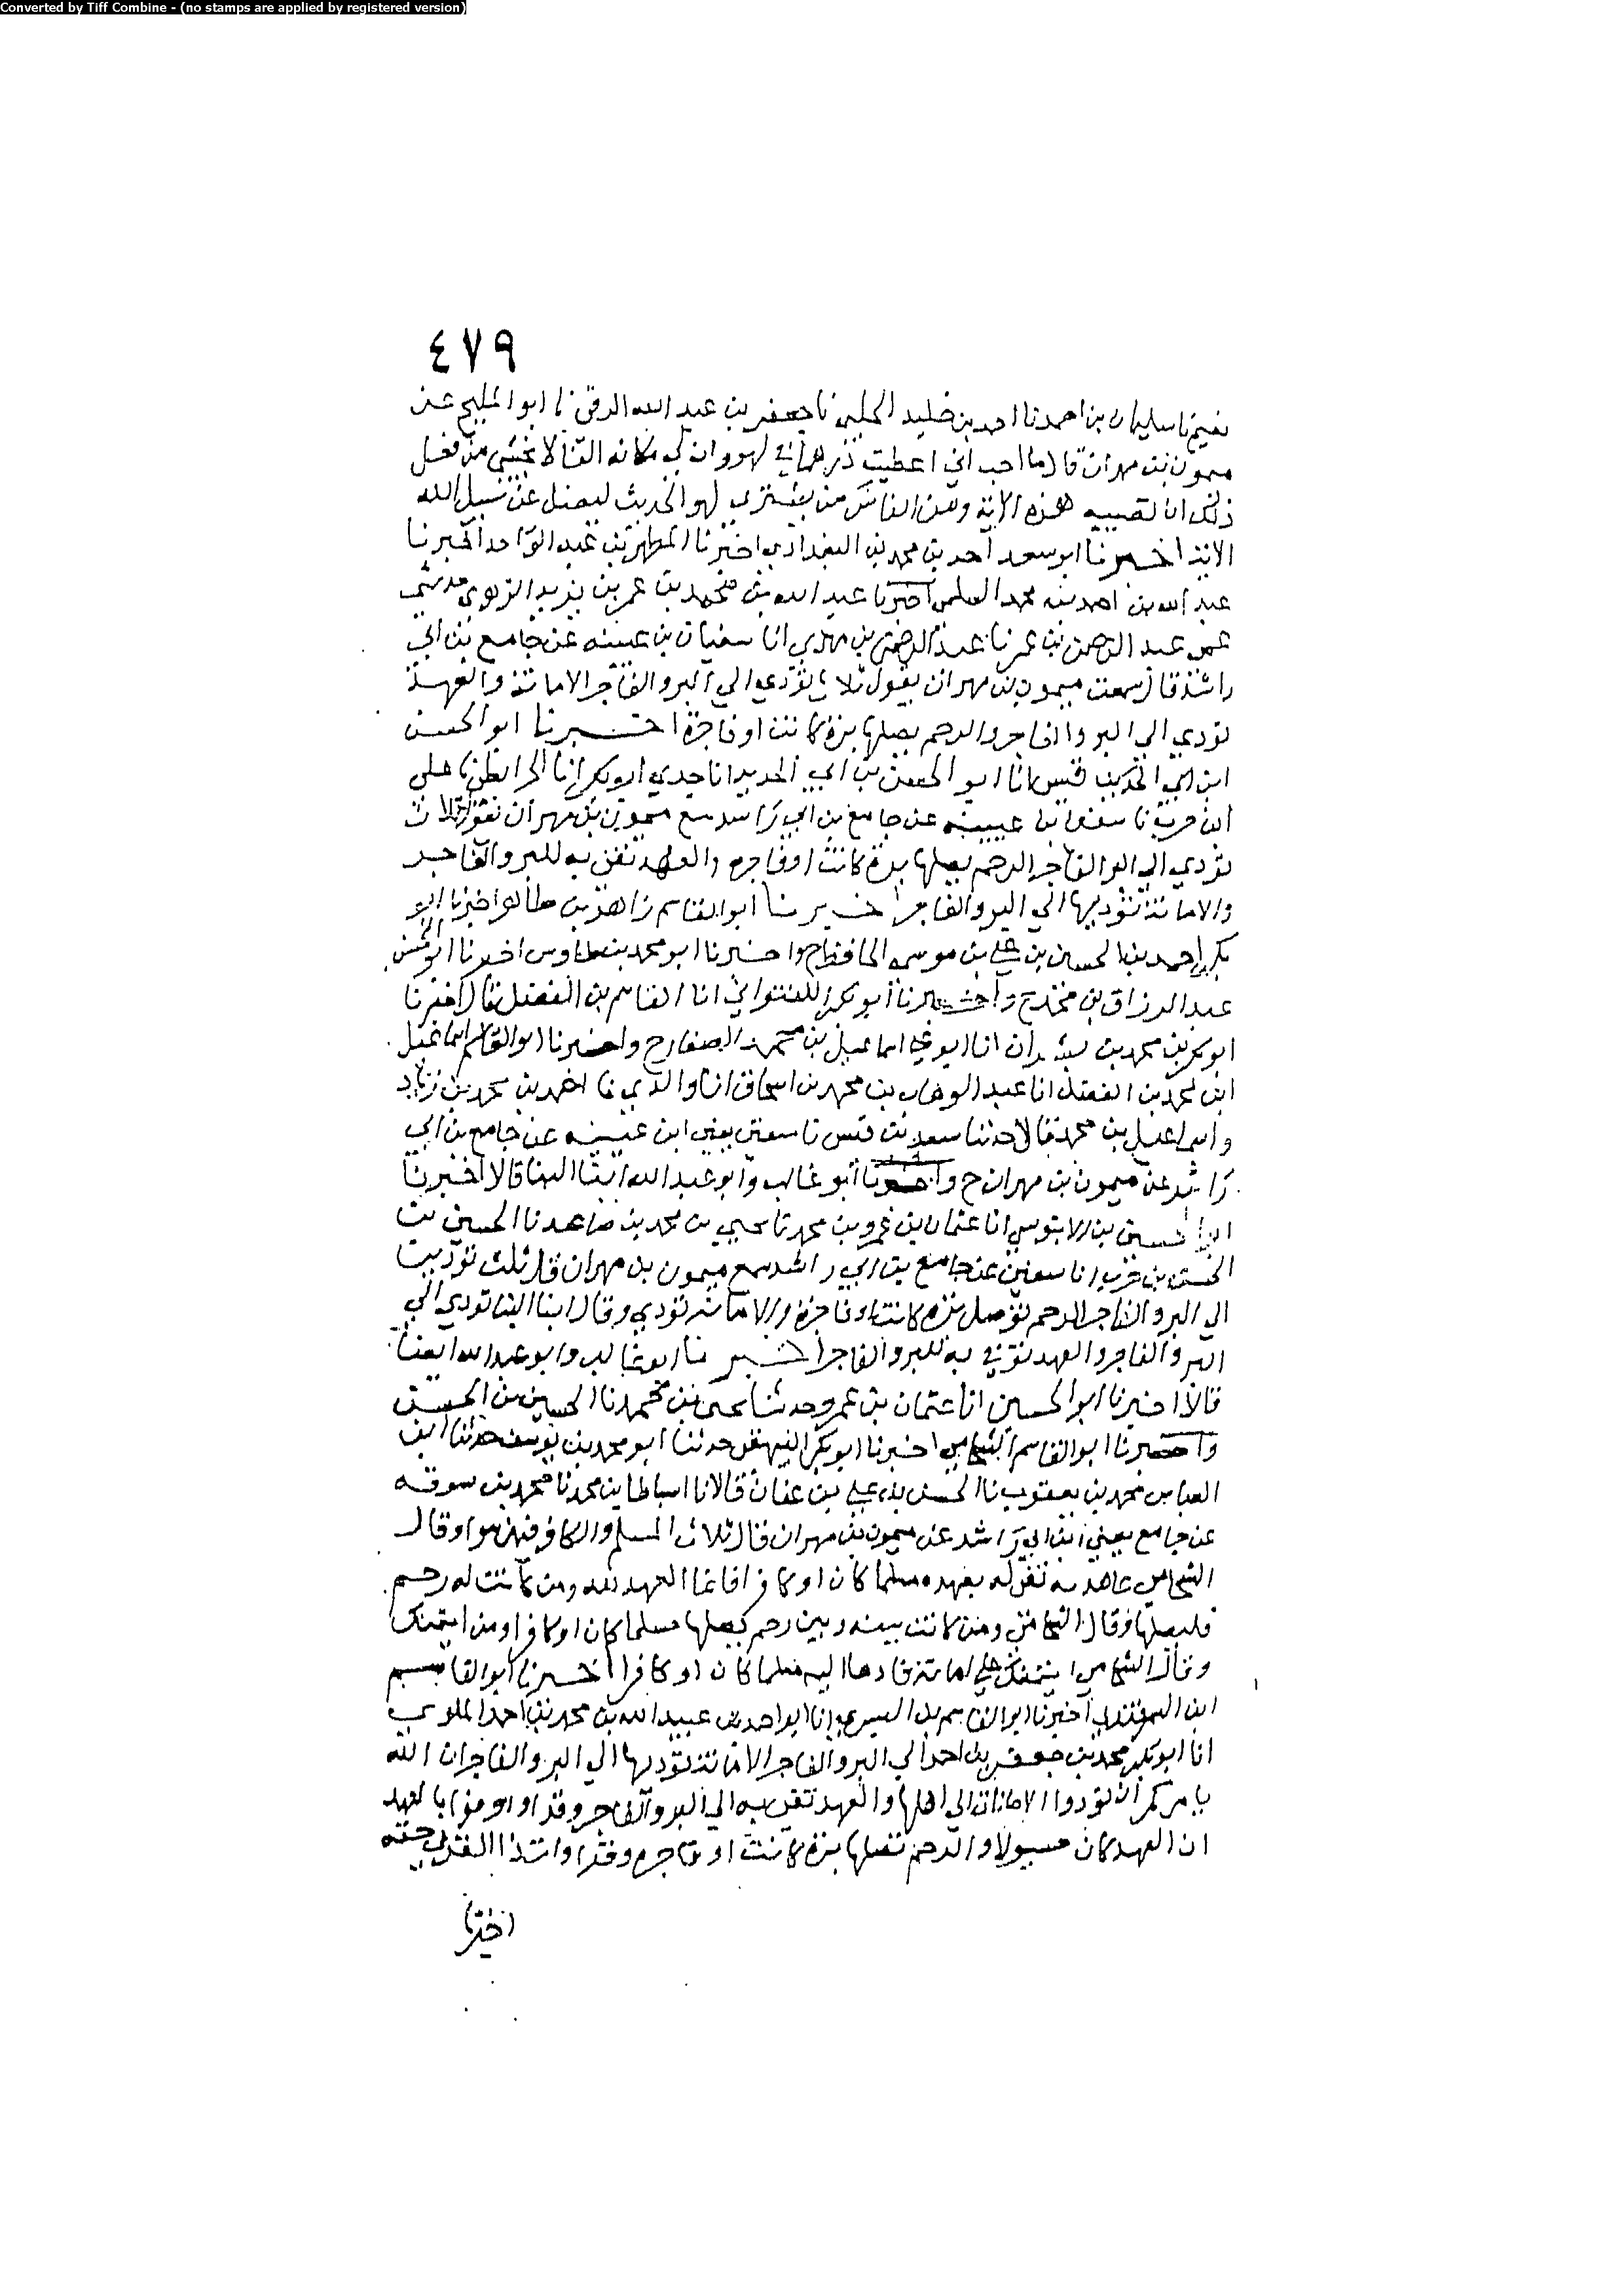 Converted by Tiff Combine - (no stamps are applied by registered version)
٤٧٩
نعيم نا سليمان بن احمد نا احمد بن خليد الحلبي نا جعفر بن عبد الله الرقي نا ابو المليح عن
ميمون بن مهران قال ما احب اني اعطيت درهما في لهو وان لي مكانه الفا لا يخشى من فعل
ذلك ان تصيبه هذه الاية ومن الناس من يشتري لهو الحديث ليضل عن سبيل الله
الاية اخبرنا ابو سعد احمد بن محمد بن البغدادي اخبرنا المطهر بن عبد الواحد اخبرنا
عبد الله بن احمد بن محمد السلمي اخبرنا عبد الله بن محمد بن عمر بن يزيد الزهري حدثني
عمي عبد الرحمن بن عمر نا عبد الرحمن بن مهدي انا سفيان بن عيينه عن جامع بن ابي
راشد قال سمعت ميمون بن مهران يقول ثلاث تؤدي الي البر والفاجر الامانة والعهد
تؤدي الي البر والفاجر والرحم يصلها برة كانت او فاجرة اخبرنا ابو الحسن
ابن ابي الحديد انا جدي ابو بكر انا الخرائطي نا علي
ابن حرب نا سفيان بن عيينه عن جامع بن ابي راشد سمع ميمون بن مهران يقول ثلاث
تؤدي الي البر والفاجر الرحم يصلها برة كانت او فاجره والعهد تفي به للبر والفاجر
والامانة تؤديها الي البر والفاجر اخبرنا ابو القاسم زاهر بن طاهر اخبرنا ابو
بكر احمد بن الحسين بن علي بن موسى الحافظ ح واخبرنا ابو محمد بن طاوس اخبرنا
عبد الرزاق بن محمد ح واخبرنا ابو بكر اللفتواني انا القاسم بن الفضل قال اخبرنا
ابو بكر بن محمد بن انا ابو علي اسماعيل بن محمد الصفار ح واخبرنا ابو القاسم اسماعيل
ابن محمد بن الفضل انا عبد الوهاب بن محمد بن اسحاق انا والدي نا احمد بن محمد بن زياد
واسماعيل بن محمد قالا حدثنا سعدان نا سفين يعني ابن عيينه عن جامع بن ابي
راشد عن ميمون بن مهران ح واخبرنا ابو غالب وابو عبد الله ابنا البنا قالا اخبرنا
ابو الحسين بن الابنوسي انا عثمان بن عمرو بن محمد نا يحيي بن محمد بن صاعد نا الحسين بن
الحسن بن حرب انا سفين عن جامع بن ابي راشد سمع ميمون بن مهران قال ثلث تؤدين
الي البر والفاجر الرحم توصل برة كانت او فاجرة والامانة تؤدي وقال ابنا البنا تودي الي
البر والفاجر والعهد توفي به للبر والفاجر اخبرنا ابو غالب وابو عبد الله ايضا
قالا اخبرنا ابو الحسين انا عثمان بن عمرو حدثنا يحيى بن محمد نا الحسين بن الحسن
واخبرنا ابو القاسم الشحامي اخبرنا ابو بكر البيهقي حدثنا ابو محمد بن يوسف حدثنا ابو
العباس محمد بن يعقوب نا الحسن بن علي بن عفان قالا نا اسباط بن محمد نا محمد بن سوقه
عن جامع يعني ابن ابي راشد عن ميمون بن مهران قال ثلاث المسلم والكافر فيهن سوا وقال
الشحامي عاهدته تفي له بعهده مسلما كان او كافرا فانما العهد لله ومن كانت له رحم
فليصلها وقال الشحامي ومن كانت بينه وبين رحم يصلها مسلما كان او كافرا ومن ايتمنك
وقال الشحامي ايتمنك علي امانة فادها اليه مسلما كان او كافرا اخبرنا ابو القاسم
ابن السمرقندي اخبرنا ابو القاسم بن البسري انا ابو احمد عبيد الله بن محمد بن احمد
انا ابو بكر محمد بن جعفر بن احمد الي البر والفاجر الامانة تؤديها الي البر والفاجر ان الله
يامركم ان تؤدوا الامانات الي اهلها والعهد تفي به الي البر والفاجر وقرا واوفوا بالعهد
ان العهد كان مسولا والرحم تصلها برة كانت او فاجره وقرا وات ذا القربى حقه
اخبرنا